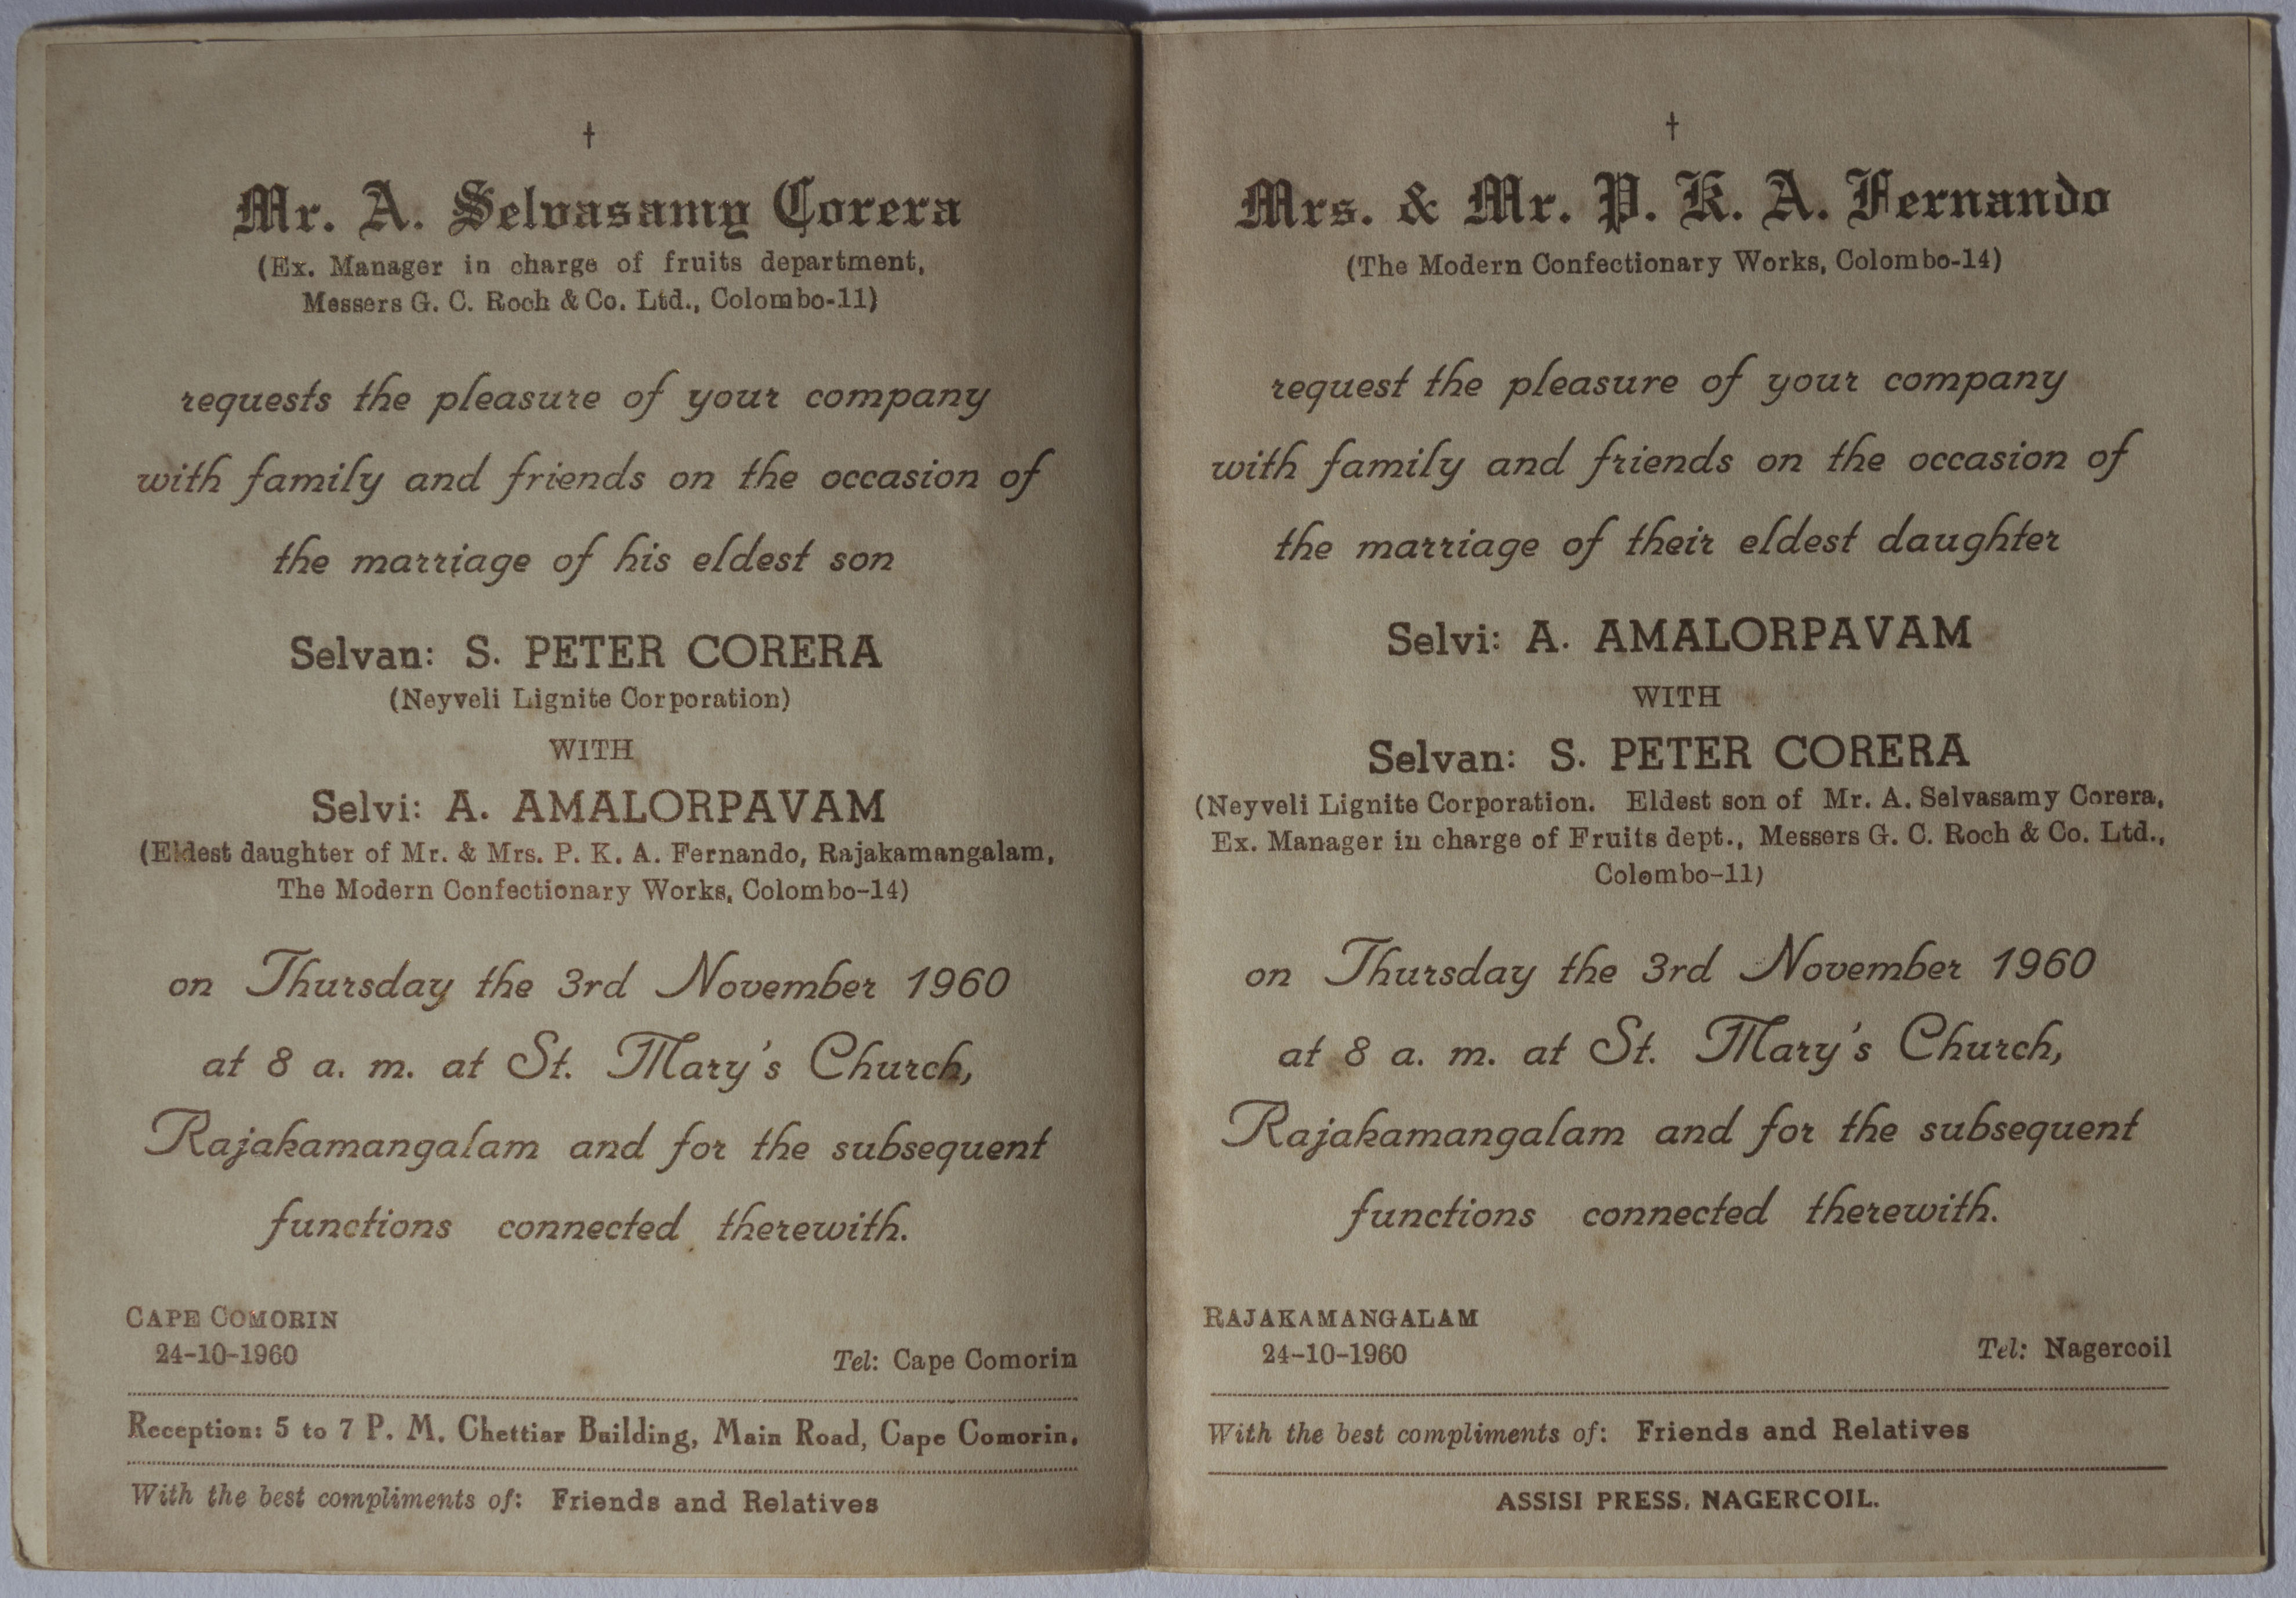 †
Mr. A. Selvasamy Corera
(Ex. Manager in charge of fruits department,
Messers G. C. Roch & Co. Ltd., Colombo-11)
requests the pleasure of your company
with family and friends on the occasion of
the marriage of his eldest son
Selvan: S. PETER CORERA
(Neyveli Lignite Corporation)
WITH
Selvi: A. AMALORPAVAM
(Eldest daughter of Mr. & Mrs. P. K. A. Fernando, Rajakamangalam,
The Modern Confectionary Works, Colombo-14)
on Thursday the 3rd November 1960
at 8 a. m. at St. Mary's Church,
Rajakamangalam and for the subsequent
functions connected therewith.
CAPE COMORIN
24-10-1960
Tel: Cape Comorin
Reception: 5 to 7 P. M. Chettiar Building, Main Road, Cape Comorin.
With the best compliments of: Friends and Relatives
†
Mrs. & Mr. P. K. A. Fernando
(The Modern Confectionary Works, Colombo-14)
request the pleasure of your company
with family and friends on the occasion of
the marriage of their eldest daughter
Selvi: A. AMALORPAVAM
WITH
Selvan: S. PETER CORERA
(Neyveli Lignite Corporation. Eldest son of Mr. A. Selvasamy Corera,
Ex. Manager in charge of Fruits dept., Messers G. C. Roch & Co. Ltd.,
Colombo-11)
on Thursday the 3rd November 1960
at 8 a. m. at St. Mary's Church,
Rajakamangalam and for the subsequent
functions connected therewith.
RAJAKAMANGALAM
24-10-1960
Tel: Nagercoil
With the best compliments of: Friends and Relatives
ASSISI PRESS, NAGERCOIL.